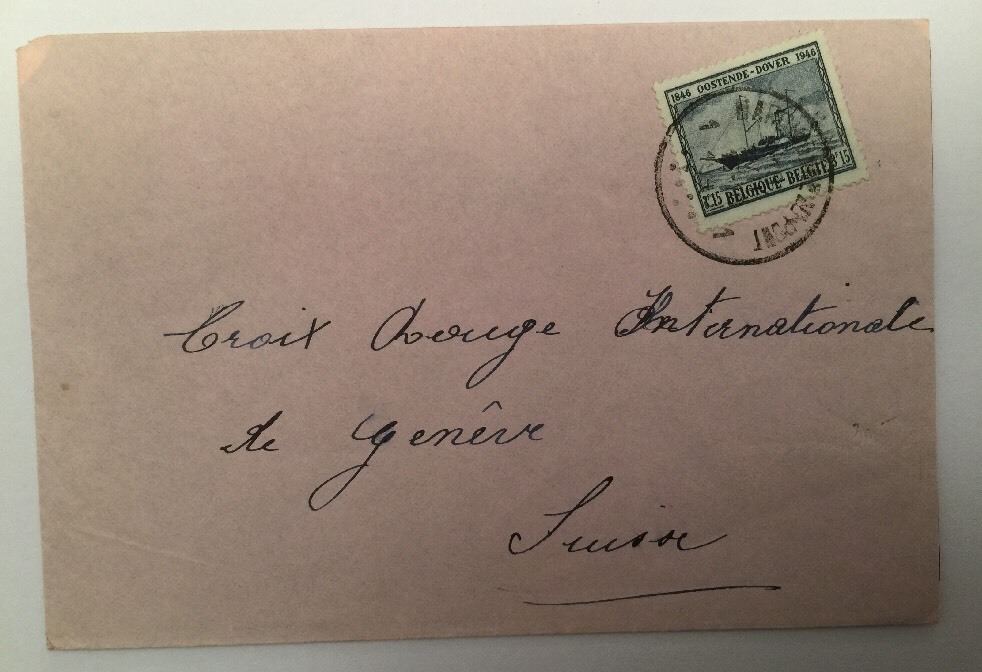 1846 OOSTENDE-DOVER 1946
BELGIQUE-BELGIË
Croix Rouge Internationale
de Genêve
Suisse